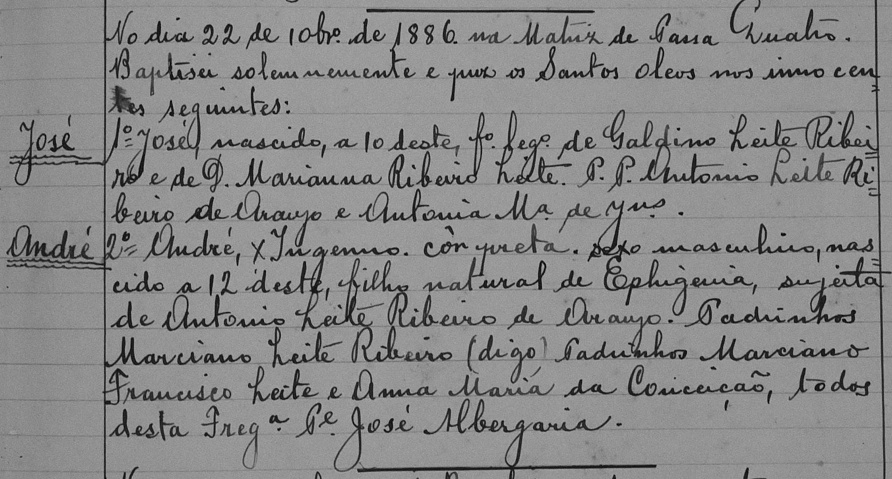 No dia 22 de 10bro. de 1886. na Matriz de Passa Quatro.
Baptisei solemnemente e puz os Santos Oleos nos innocen=
tes seguintes:
José 1º= José, nascido, a 10 deste, fº. legº. de Galdino Leite Ribei=
ro e de D. Marianna Ribeiro Leite. P. P. Antonio Leite Ri=
beiro de Araujo e Antonia Ma. de Jus.
André 2º= André, x Ingenuo. côr preta. sexo masculino, nas=
cido a 12 deste, filho natural de Ephigenia, sujeita
de Antonio Leite Ribeiro de Araujo. Padrinhos
Marciano Leite Ribeiro (digo) Padrinhos Marciano
Francisco Leite e Anna Maria da Conceição, todos
desta Freg.a Pe. José Albergaria.